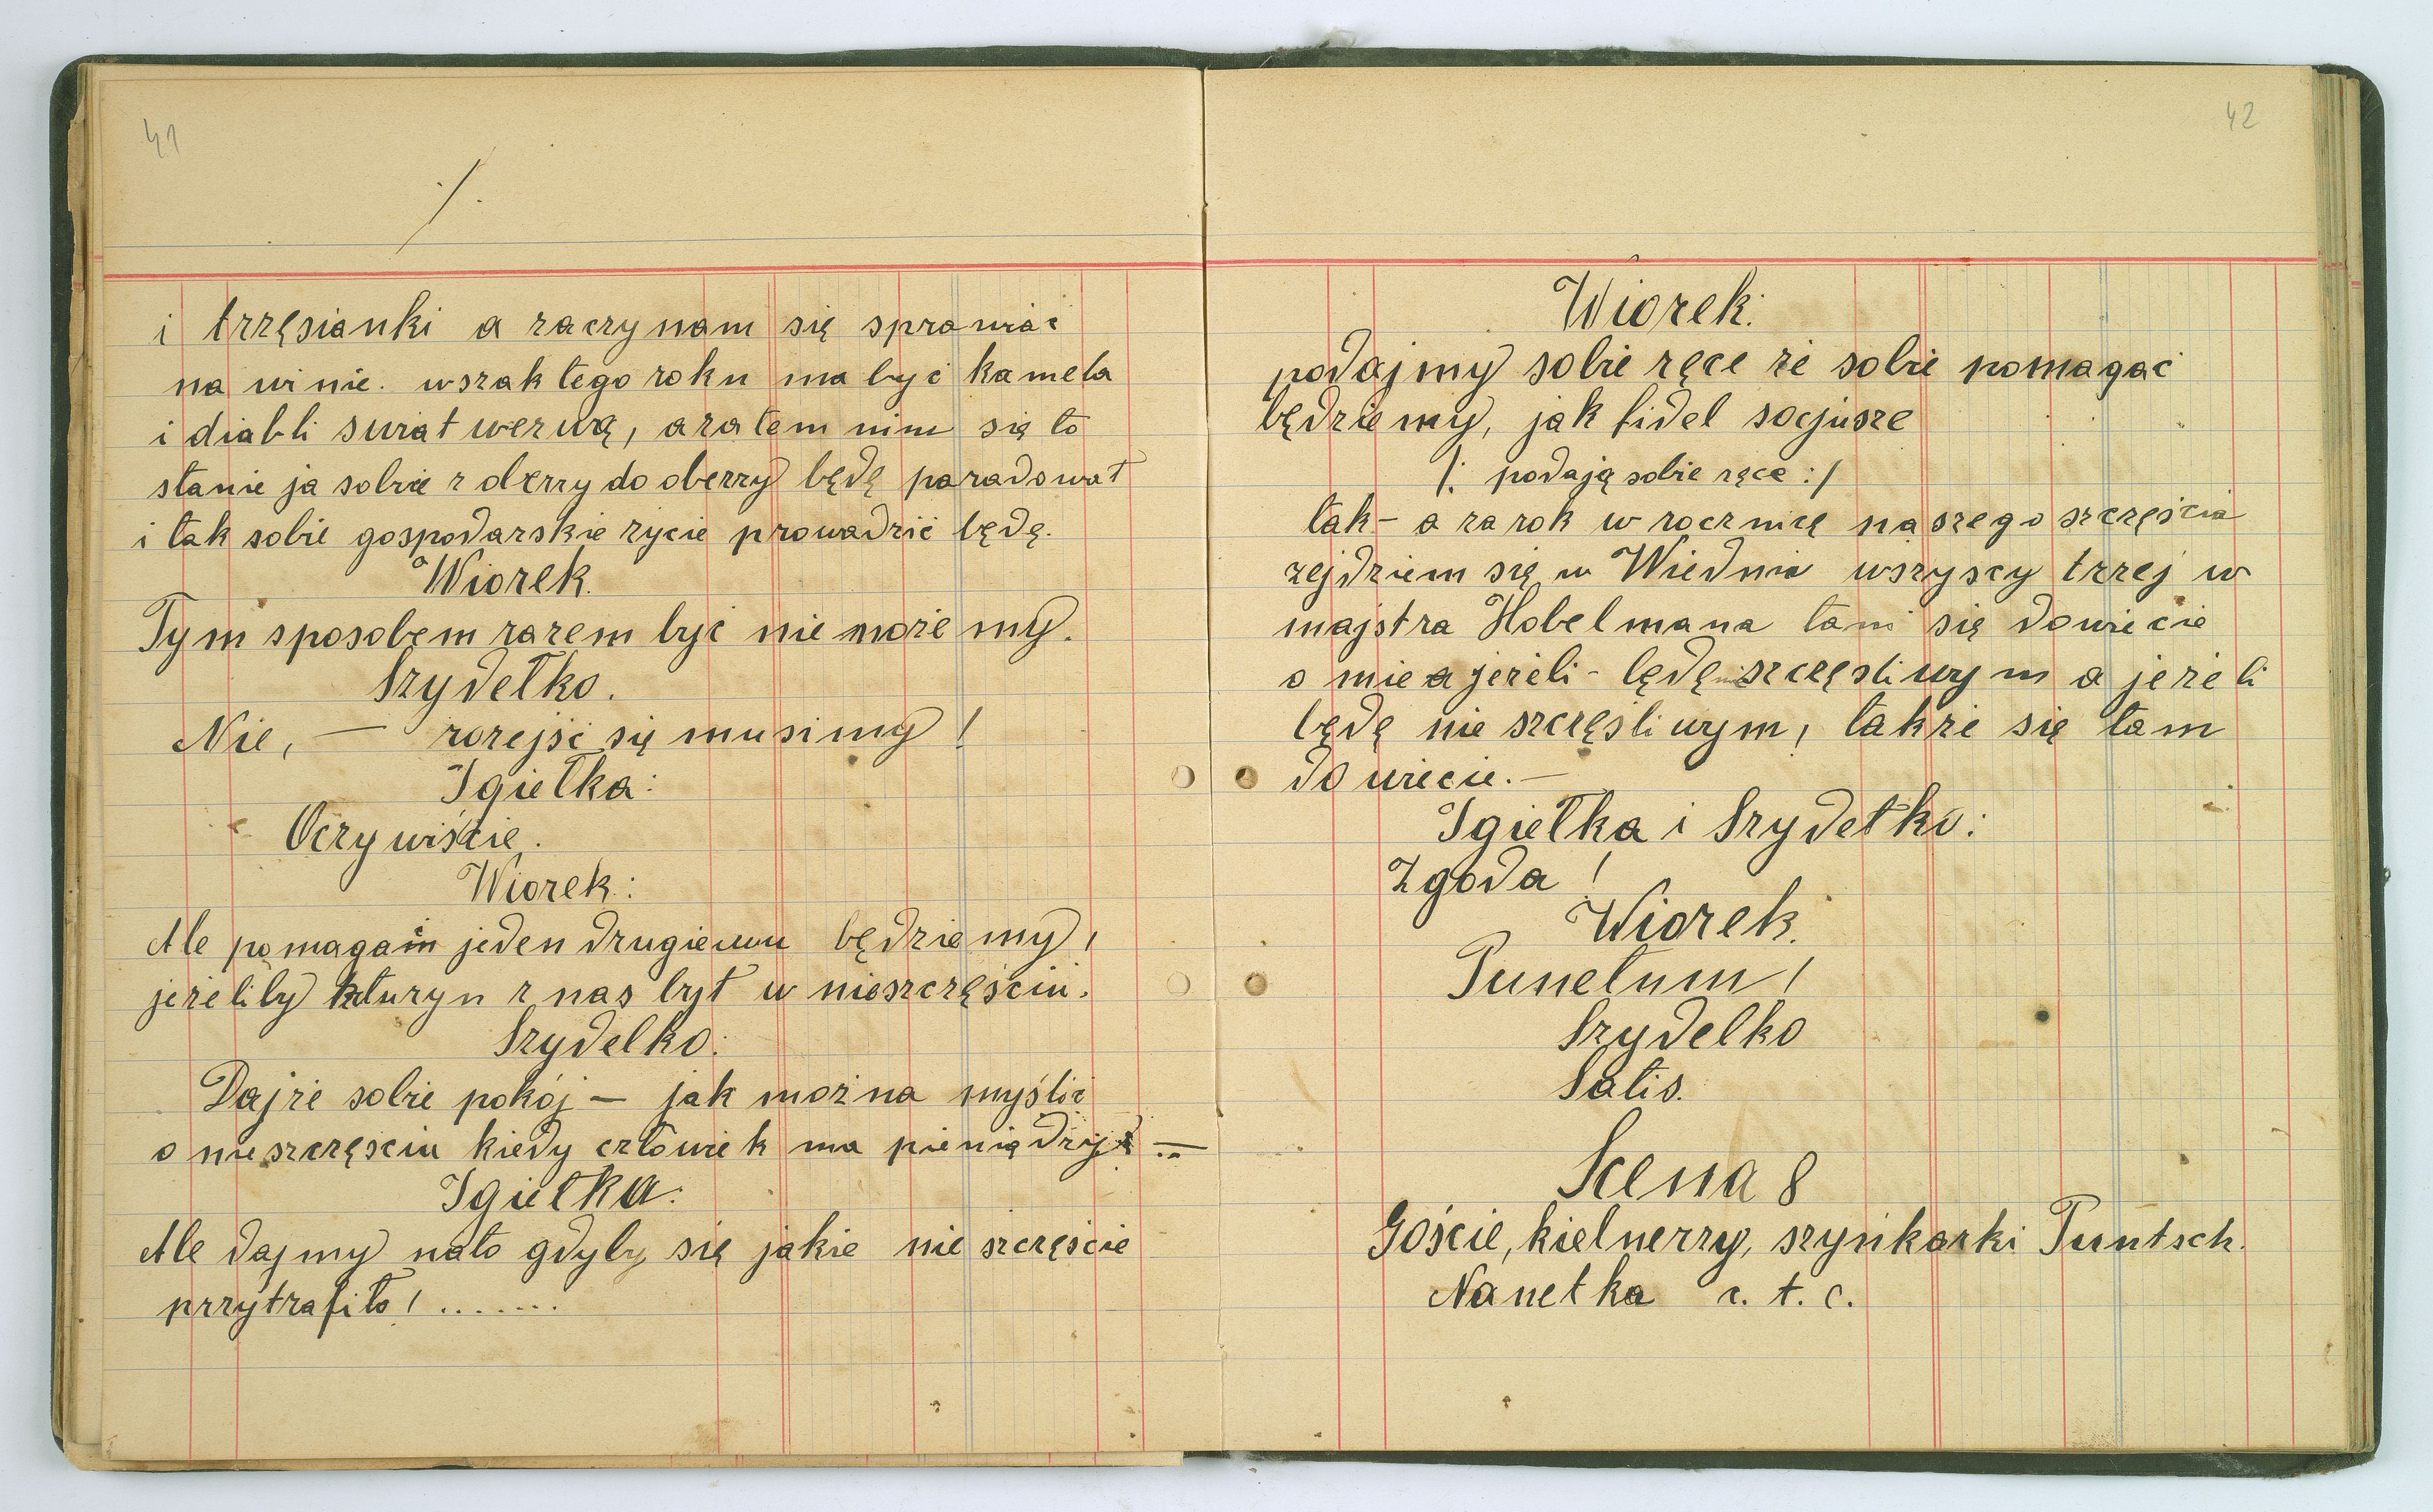 41
./.
i trzęsianki a zaczynam się sprawiać
na winie. wszak tego roku ma być kameta
i diabli świat wezwą, a zatem nim się to
stanie ja sobie z oberzy do oberzy będę paradował
i tak sobie gospodarskie życie prowadzić będę.
Wiorek.
Tym sposobem razem być nie może my.
Szydełko.
Nie, — rozejść się musimy!
Igiełka:
Oczywiście.
Wiorek:
Ale pomagam jeden drugiemu będziemy,
jeżeliby kturyn z nas był w nieszczęściu.
Szydelko:
Dajże sobie pokój — jak można myślić
o nieszczęsciu kiedy człowiek ma pieniądzy
Igiełka:
Ale dajmy nato gdyby się jakie nie szczęście
przytrafiło! .......
42
Wiorek:
podajmy sobie ręce że sobie pomagać
będziemy, jak fidel socjusze
/: podają sobie ręce :/
tak – a za rok w rocznicę naszego szczęścia
zejdziem się w Wiednia wszyscy trzej w
majstra Hobelmana tam się dowiecie
o mie a jeżeli – będę szczęsliwym a jeżeli
będę nie szczęśliwym, także się tam
do wiecie. —
Igiełka i Szydełko:
Zgoda!
Wiorek:
Punctum!
Szydelko
Satis.
Scena 8
Goście, kielnerzy, szynkarki Puntsch.
Nanetka c. t. c.